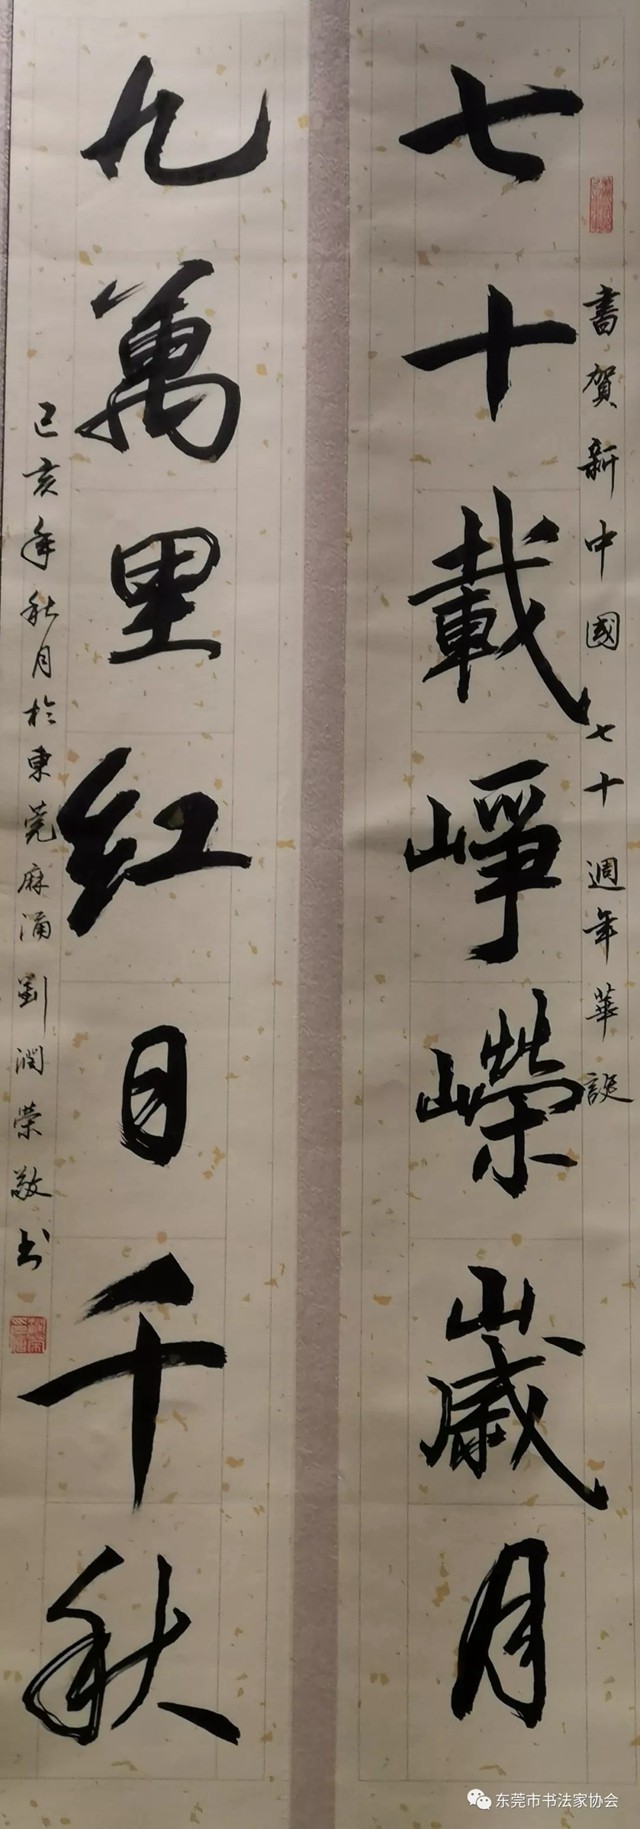 書賀新中國七十週年華誕
七十載崢嶸歲月
九萬里红日千秋
己亥年秋月於東莞麻涌劉潤榮敬书
东莞市书法家协会